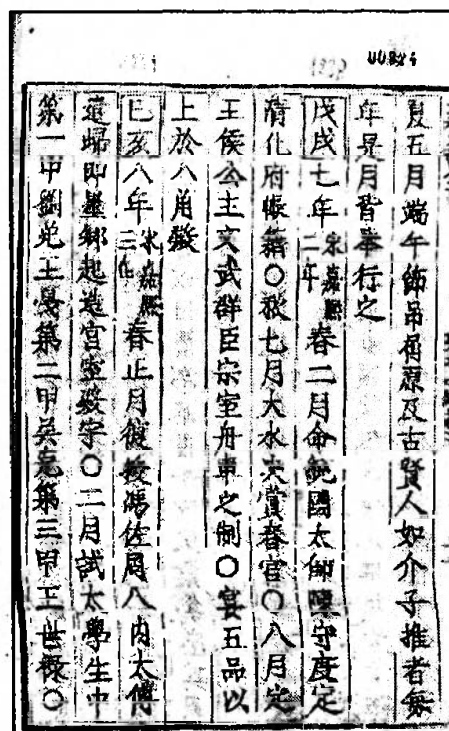 00824
夏五月端午節吊屈原及古賢人如介子推者每
年是月皆舉行之
戊戌七年宋嘉熙二年春二月命統國太師陳守度定
清化府帳籍〇秋七月大水決賞春宮〇八月定
王侯公主文武群臣宗室舟車之制〇宴五品以
上於八角殿
己亥八年宋嘉熙三年春正月復授馮佐周入內太傅
遣歸即墨鄉起造宮室殿宇〇二月試太學生中
第一甲劉免王戛第二甲吳克第三甲王世祿〇